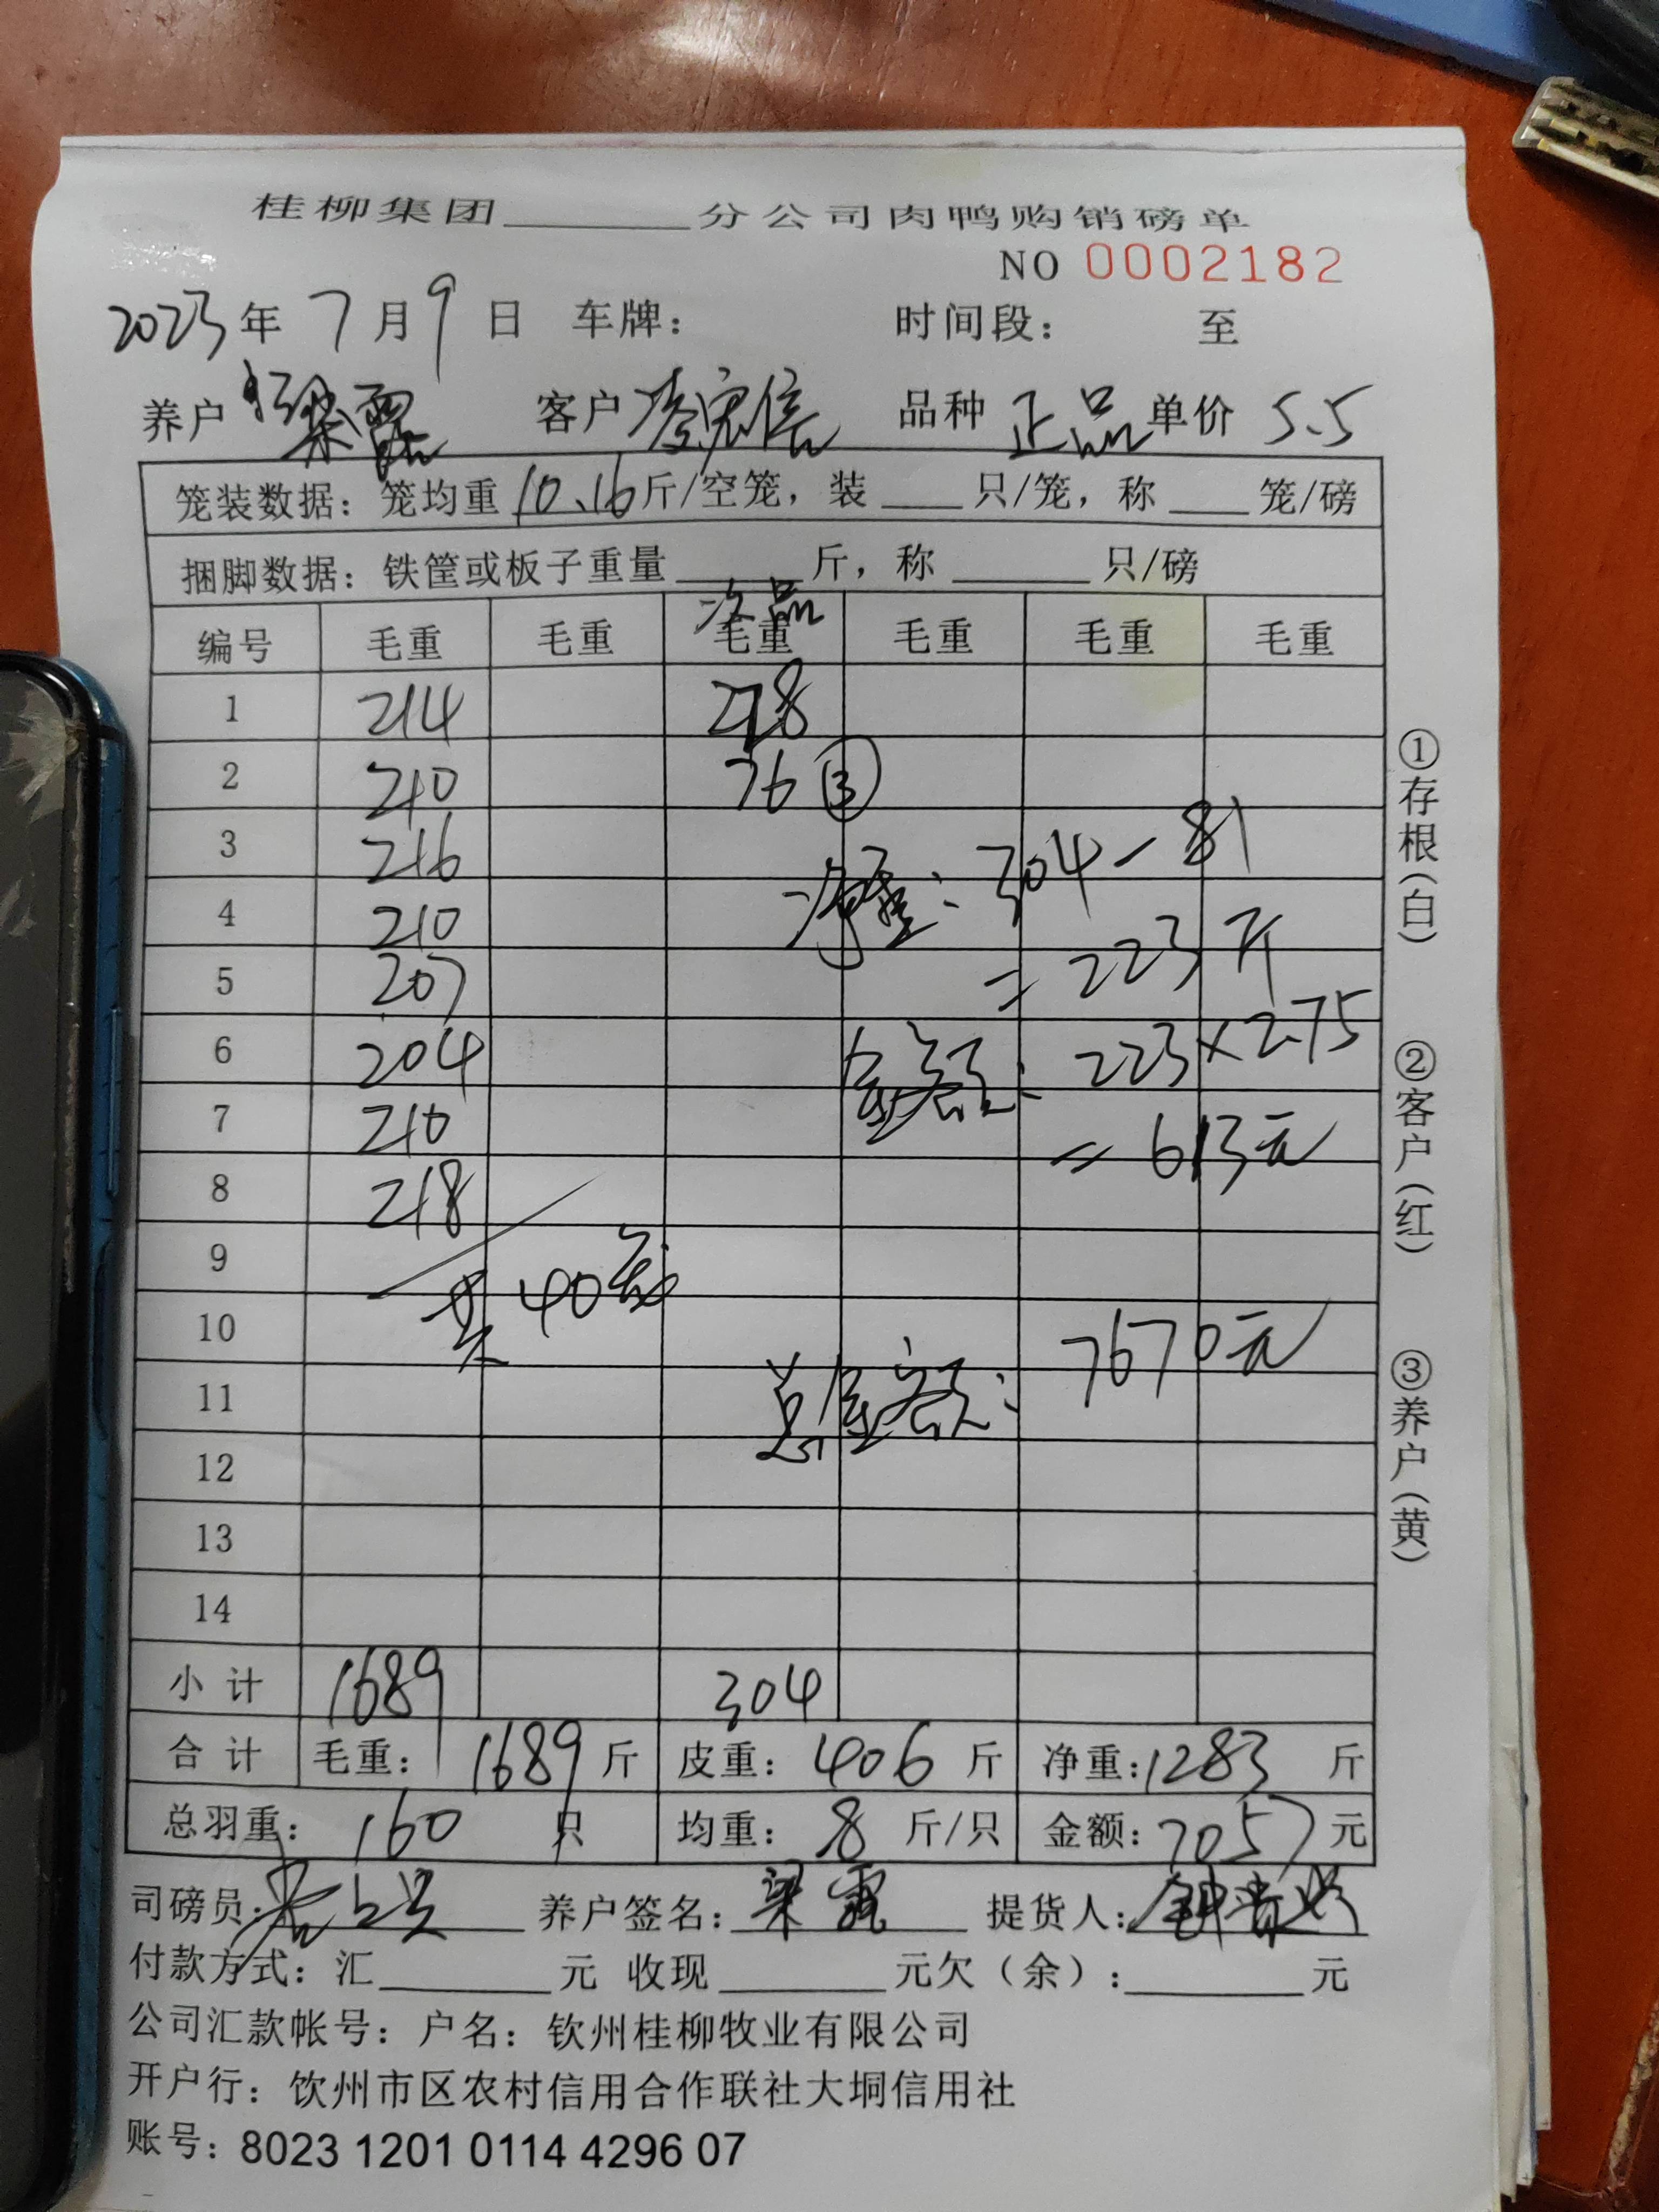 桂柳集团______分公司肉鸭购销磅单
NO 0002182
2023年 7月9日 车牌: 时间段: 至
养户 梁露 客户 凌宏信 品种 正品 单价 5.5
笼装数据:笼均重 10.16 斤/空笼,装____只/笼,称____笼/磅
捆脚数据:铁筐或板子重量______斤,称______只/磅
次品
编号 毛重 毛重 毛重 毛重 毛重 毛重
1 214 228
2 210 76 ③
3 216 净重:304-81
4 210 =223斤
5 207
6 204 金额:223×2.75
7 210 =613元
8 218
9 共40笼
10 7670元
11 总金额:
12
13
14
小计 1689 304
合计 毛重:1689斤 皮重:406斤 净重:1283斤
总羽重:160只 均重:8斤/只 金额:7057元
司磅员: 养户签名:梁露 提货人:
付款方式:汇______元 收现______元欠(余):______元
公司汇款帐号:户名:钦州桂柳牧业有限公司
开户行:饮州市区农村信用合作联社大垌信用社
账号:8023 1201 0114 4296 07
①存根(白)
②客户(红)
③养户(黄)